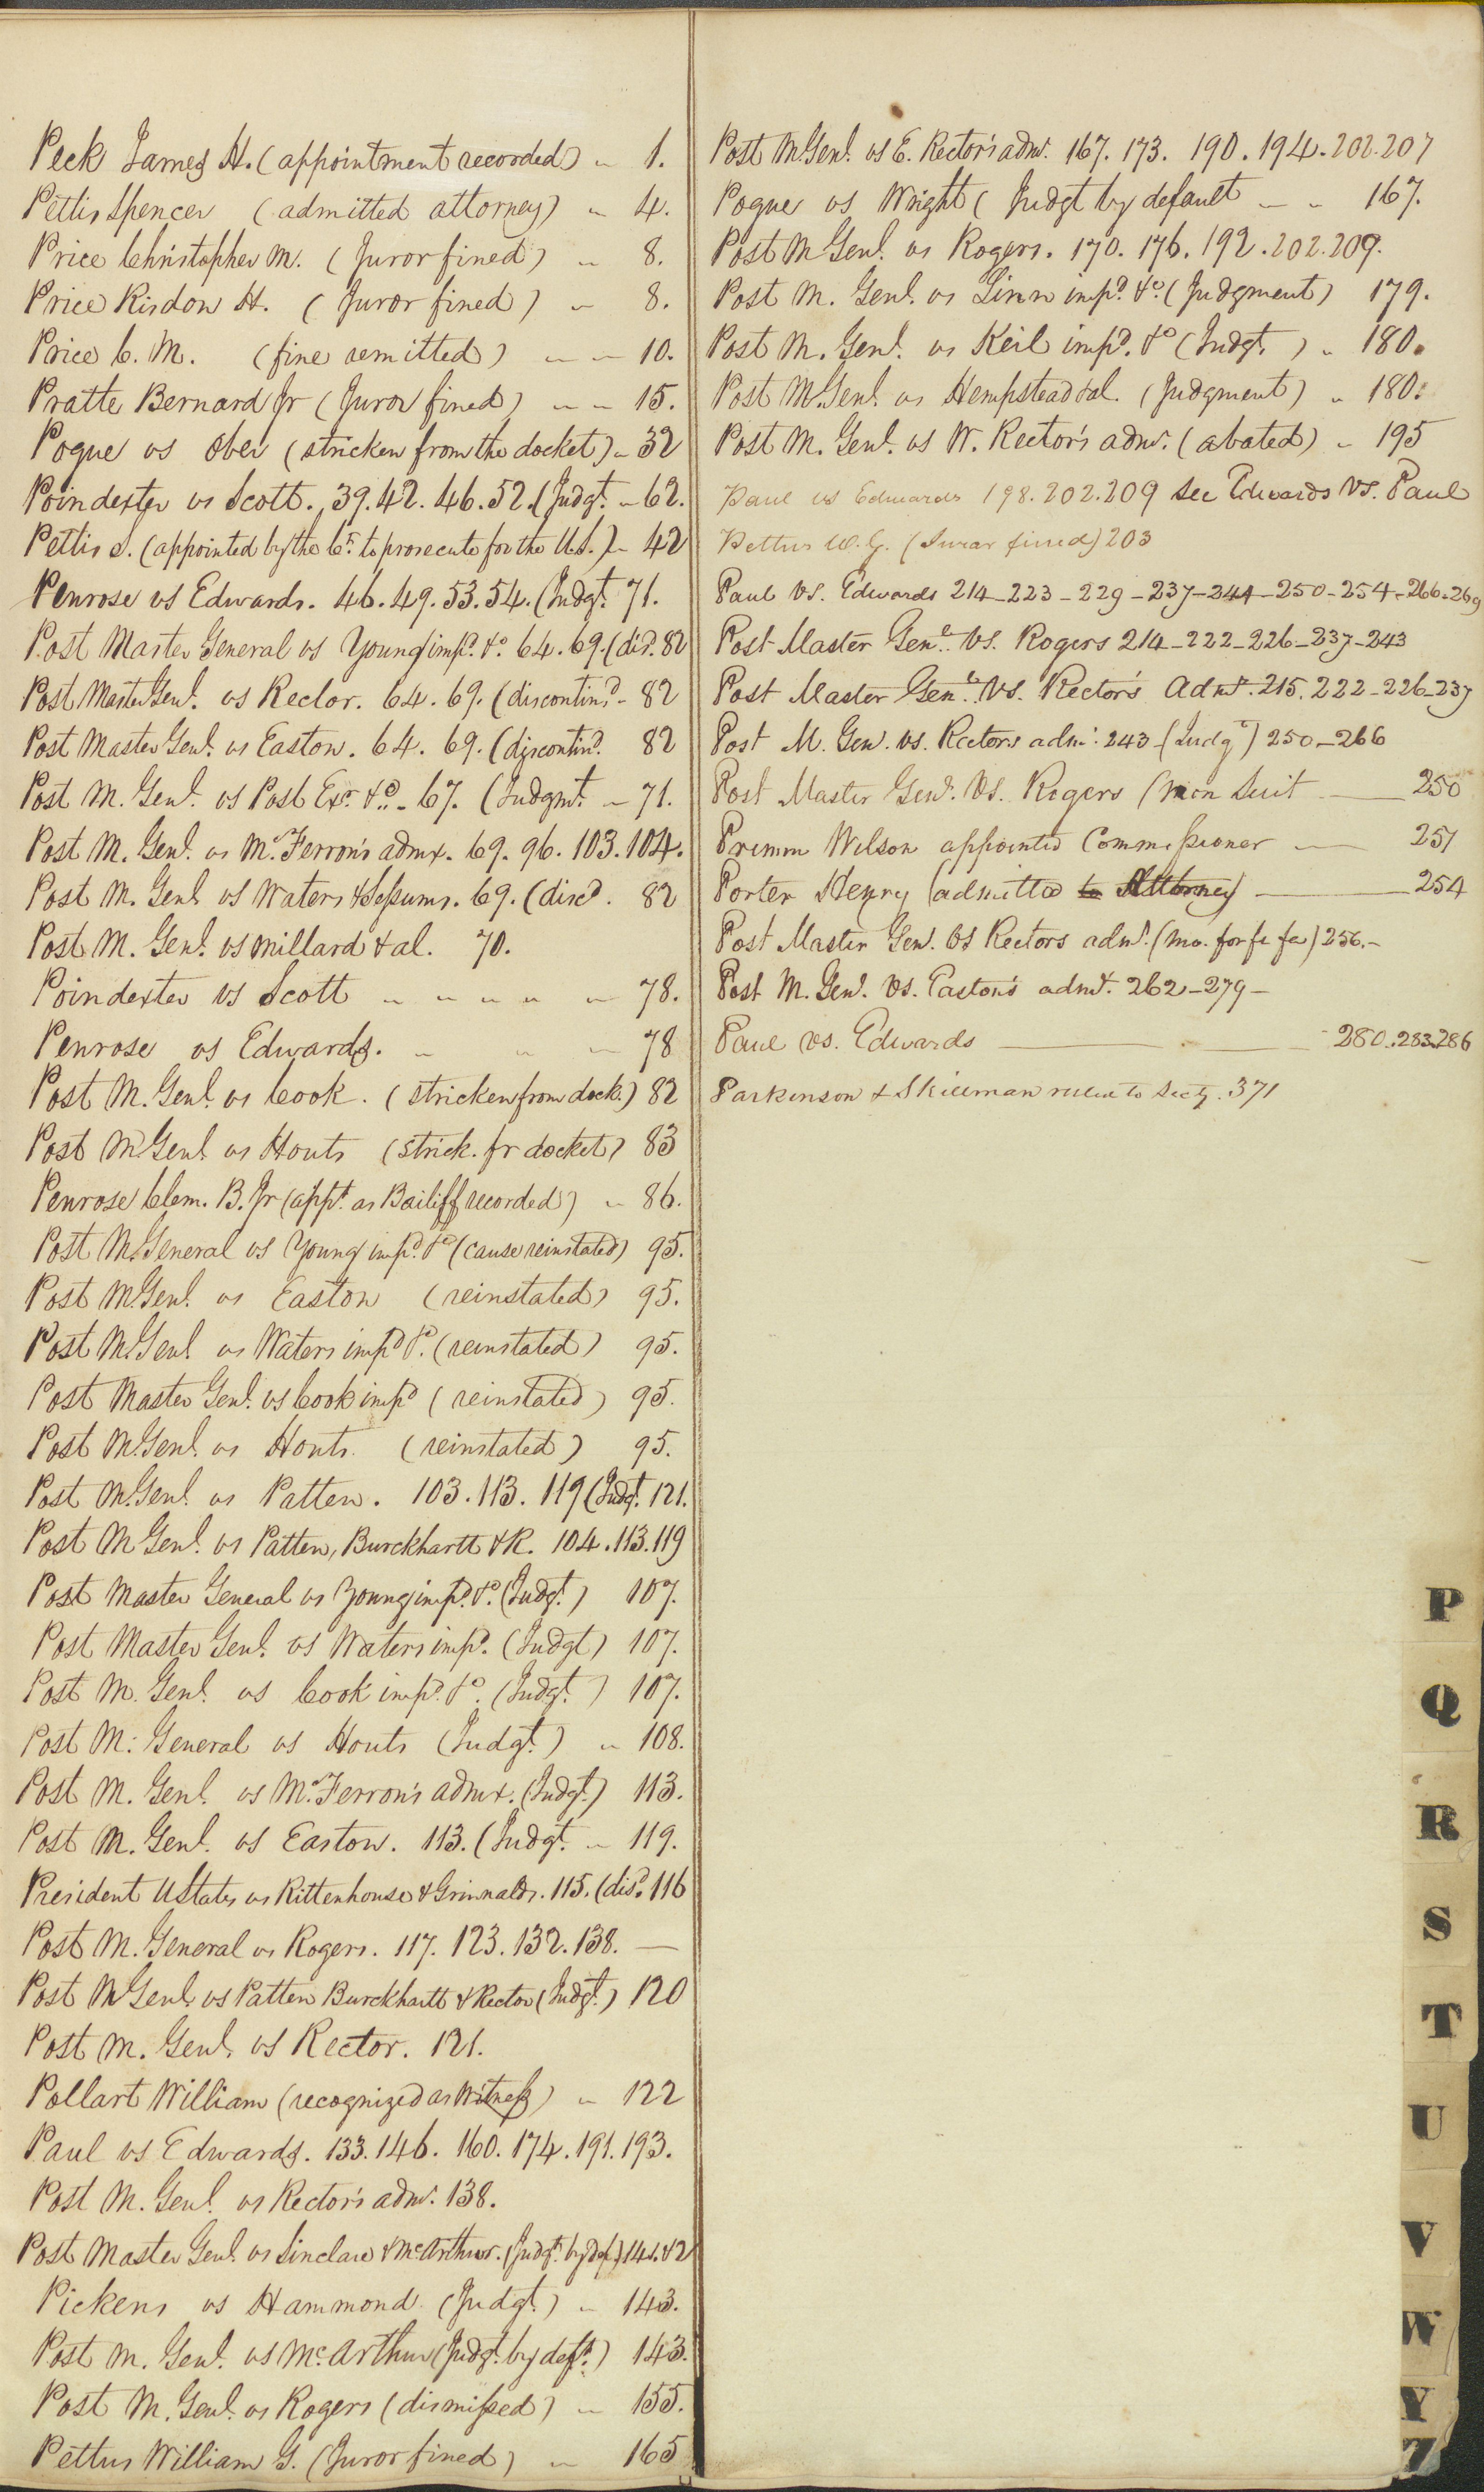 Peck James H. (appointment recorded) " 1.
Pettis Spencer (admitted attorney) " 4.
Price Christopher M. (Juror fined) " 8.
Price Risdon H. (Juror fined) " 8.
Price C. M. (fine remitted) " " 10.
Pratte Bernard Jr (Juror fined) " " 15.
Pogue vs Ober (stricken from the docket) " 32
Poindexter vs Scott. 39. 42. 46. 52. (Judgt. " 62.
Pettis S. (appointed by the Ct. to prosecute for the U.S.) " 42
Penrose vs Edwards. 46. 49. 53. 54. (Judgt. 71.
Post Master General vs Young impd. &c. 64. 69. (disd. 82
Post Master Genl. vs Rector. 64. 69. (discontind. " 82
Post Master Genl. vs Easton. 64. 69. (discontind. 82
Post M. Genl. vs Post Exr. &c. " 67. (Judgmt. " 71.
Post M. Genl. vs McFerron's admx. 69. 96. 103. 104.
Post M. Genl vs Waters & Sessums. 69. (discd. 82
Post M. Genl. vs Millard & al. 70.
Poindexter vs Scott " " " " " 78.
Penrose vs Edwards. " " " 78
Post M. Genl. vs Cook. (stricken from dock.) 82
Post M Genl. vs Houts (strick. fr docket) 83
Penrose Clem. B. Jr (appt. as Bailiff recorded) " 86.
Post M. General vs Young impd. &c (cause reinstated) 95.
Post M. Genl. vs Easton (reinstated) 95.
Post M. Genl. vs Waters impd &c. (reinstated) 95.
Post Master Genl. vs Cook impd (reinstated) 95.
Post M. Genl. vs Houts. (reinstated) 95.
Post M. Genl. vs Patten. 103. 113. 119 (Judgt. 121.
Post M Genl. vs Patten, Burckhartt & R. 104. 113. 119
Post Master General vs Young impd. &c. (Judgt.) 107.
Post Master Genl. vs Waters impd. (Judgt) 107.
Post M. Genl. vs Cook impd. &c. (Judgt.) 107.
Post M: General vs Houts (Judgt.) " 108.
Post M. Genl. vs McFerron's admx. (Judgt.) 113.
Post M. Genl. vs Easton. 113. (Judgt. " 119.
President U States vs Rittenhouse & Grinnalds. 115. (disd. 116
Post M. General vs Rogers. 117. 123. 132. 138. —
Post M Genl. vs Patten Burckhartt & Rector (Judgt.) 120
Post M. Genl. vs Rector. 121.
Pollart William (recognized as Witness) " 122
Paul vs Edwards. 133. 146. 160. 174. 191. 193.
Post M. Genl. vs Rector's admr. 138.
Post Master Genl. vs Sinclare & McArthur. (Judgt. by def.) 141. 42
Pickens vs Hammond (Judgt.) " 143.
Post M. Genl. vs McArthur (Judgt. by deft.) 143.
Post M. Genl. vs Rogers (dismissed) " 155.
Pettus William G. (Juror fined) " 165
Post M. Genl. vs E. Rector's admr. 167. 173. 190. 194. 202. 207
Pogue vs Wright (Judgt by default " " 167.
Post M Genl. vs Rogers. 170. 176. 192. 202. 209.
Post M. Genl. vs Linn impd. &c. (Judgment) 179.
Post M. Genl. vs Keil impd. &c (Judgt.) " 180.
Post M. Genl. vs Hempstead & al. (Judgment) " 180.
Post M. Genl. vs W. Rector's admr. (abated) " 195
Paul vs Edwards 198. 202. 209 See Edwards vs. Paul
Pettus W. G. (Juror fined) 203
Paul vs. Edwards 214-223-229-237-244-250-254-266-269
Post Master Genl. vs. Rogers 214-222-226-237-243
Post Master Genl. vs. Rector's Admr. 215. 222-226-237
Post M. Gen. vs. Rectors admr. 243 (Judgt) 250-266
Post Master Genl. vs. Rogers (Non Suit — 250
Primm Wilson appointed Commissioner — 251
Porter Henry (admitted to Attorney) — 254
Post Master Gen. vs Rectors admr. (mo. for fi fa) 256.-
Post M. Genl. vs. Easton's admr. 262-279-
Paul vs. Edwards — 280.283.286
Parkinson & Skillman to Secty. 371
P
Q
R
S
T
U
V
W
Y
Z